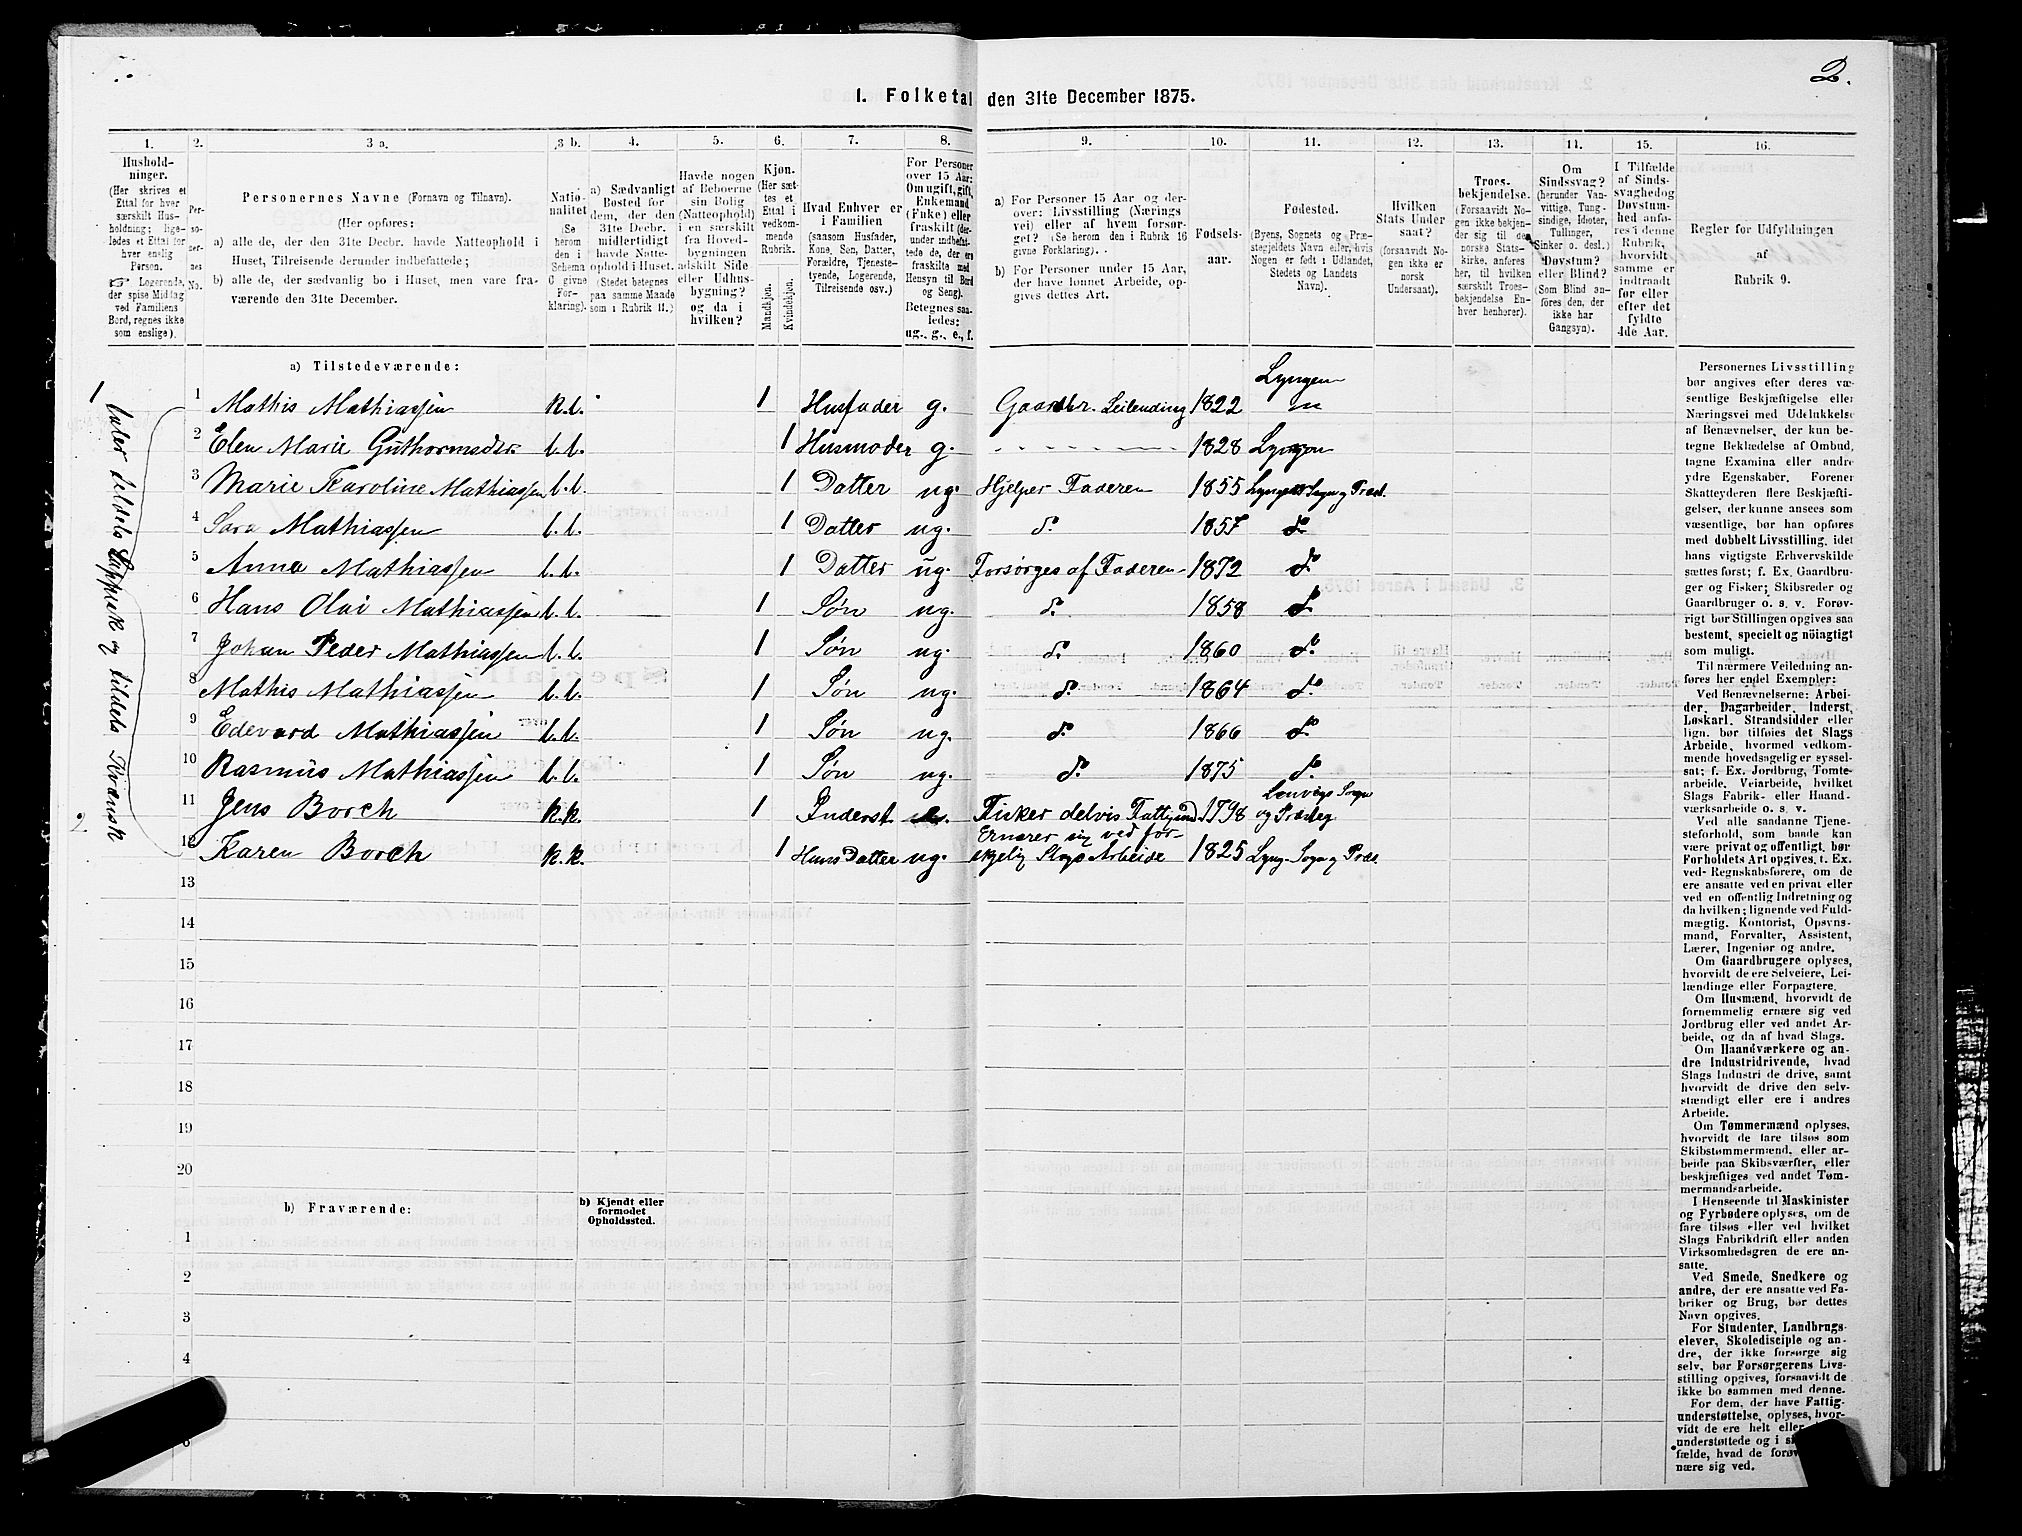 2.
1. Folketal den 31te December 1875.
1.
2.
3 a.
3 b.
4.
5.
6.
7.
8.
9.
10.
11.
12.
13.
14.
15.
16.
Hushold-
ninger.
(Her skrives et
Ettal for hver
særskilt Hus-
holdning; lige-
ledes et Ettal for
hver enslig
Person.
Logerende,
der spise Middag
ved Familiens
Bord, regnes ikke
som enslige).
Per-
so-
ner-
nes
No.
Personernes Navne (Fornavn og Tilnavn).
(Her opføres:
a) alle de, der den 31te Decbr. havde Natteophold i
Huset, Tilreisende derunder indbefattede;
b) alle de, der sædvanlig bo i Huset, men vare fra-
værende den 31te December.
Natio-
nalitet
(Se
herom
den i
Schema
C givne
For-
klaring).
a) Sædvanligt
Bosted for
dem, der den
31te Decbr.
midlertidigt
havde Natte-
ophold i Huset.
(Stedet betegnes
paa samme Maade
som i Rubrik 11.)
Havde nogen
af Beboerne
sin Bolig
(Natteophold)
i en særskilt
fra Hoved-
bygningen
adskilt Side
eller Udhus-
bygning?
og da i
hvilken?
Kjøn.
(Her sæt-
tes et
Ettal i
vedkom-
mende
Rubrik.
Mandkjøn.
Kvindekjøn.
Hvad Enhver er
i Familien
(saasom Husfader,
Kone, Søn, Datter,
Forældre, Tjeneste-
tyende, Logerende,
Tilreisende osv.)
For Personer
over 15 Aar:
Om ugift, gift,
Enkemand
(Enke) eller
fraskilt (der-
under indbefat-
tede de, der ere
fraskilte med
Hensyn til Bord
og Seng).
Betegnes saa-
ledes:
ug., g., e., f.
a) For Personer 15 Aar og der-
over: Livsstilling (Nærings
vei) eller af hvem forsør-
get? (Se herom den i Rubrik 16
givne Forklaring).
b) For Personer under 15 Aar,
der have lønnet Arbeide, op-
gives dettes Art.
Fødsels-
aar.
Fødested.
(Byens, Sognets og Præ-
stegjeldets Navn eller, hvis
Nogen er født i Udlandet,
Stedets og Landets
Navn).
Hvilken
Stats Under
saat?
(forsaavidt No-
gen ikke er
norsk
Undersaat).
Troes-
bekjendelse.
(Forsaavidt No-
gen ikke bekjen-
der sig til den
norske Stats-
kirke, anføres
her, til hvilken
særskilt Troes-
bekjendelse En-
hver henhører).
Om
Sindssvag?
(herunder Van-
vittige, Tung-
sindige, Idioter,
Tullinger,
Sinker o. desl.)
Døvstum?
eller Blind?
(Som Blind an-
føres den, der
ikke har
Gangsyn).
I Tilfælde
af Sinds-
svaghed og
Døvstum-
hed anfø-
res i denne
Rubrik,
hvorvidt
samme er
indtraadt
før eller
efter det
fyldte
4de Aar.
Regler for Udfyldningen
af
Rubrik 9.
a) Tilstedeværende:
1 taler tildels Lappisk og tildels Kvænsk
1 Mathis Mathiassen n.l. 1 Husfader g. Gaardbr. Leilending 1822 Lyngen
2 Elen Marie Guthormsdtr l.l. 1 Husmoder g. 1828 Lyngen
3 Marie Karoline Mathiassen l.l. 1 Datter ug. Hjelper Faderen 1855 Lyngens Sogn og Præst.
4 Sara Mathiassen l.l. 1 Datter ug. do 1857 do
5 Anna Mathiassen l.l. 1 Datter ug. Forsørges af Faderen 1872 do
6 Hans Olai Mathiassen l.l. 1 Søn ug. do 1858 do
7 Johan Peder Mathiassen l.l. 1 Søn ug. do 1860 do
8 Mathis Mathiassen l.l. 1 Søn ug. do 1864 do
9 Edevard Mathiassen l.l. 1 Søn ug. do 1866 do
10 Rasmus Mathiassen l.l. 1 Søn ug. do 1875 do
11 Jens Borch k.k. 1 Inderst e. Fisker delvis Fattigund. 1798 Lenvigs Sogn og Præsteg
2 12 Karen Borch k.k. 1 Hans Datter ug. Ernærer sig ved for-
skjelig Slags Arbeide 1825 Lyng. Sogn og Præs.
13
14
15
16
17
18
19
20
b) Fraværende:
b) Kjendt eller
formodet
Opholdssted.
1
2
3
4
Personernes Livsstilling
bør angives efter deres væ-
sentlige Beskjæftigelse eller
Næringsvei med Udelukkelse
af Benævnelser, der kun be-
tegne Beklædelse af Ombud,
tagne Examina eller andre
ydre Egenskaber. Forener
Skatteyderen flere Beskjæfti-
gelser, der kunne ansees som
væsentlige, bør han opføres
med dobbelt Livsstilling, idet
hans vigtigste Erhvervskilde
sættes først; f. Ex. Gaardbru-
ger og Fisker; Skibsreder og
Gaardbruger o. s. v. Forøv-
rigt bør Stillingen opgives saa
bestemt, specielt og nöiagtigt
som muligt.
Til nærmere Veiledning an-
føres her endel Exempler:
Ved Benævnelserne: Arbei-
der, Dagarbeider, Inderst,
Løskarl, Strandsidder eller
lign. bør tilføies det Slags
Arbeide, hvormed vedkom-
mende hovedsagelig er syssel-
sat; f. Ex. Jordbrug, Tomte-
arbeide, Veiarbeide, hvilket
Slags Fabrik- eller Haand-
værksarbeide o. s. v.
Ved alle saadanne Tjene-
steforhold, som baade kan
være privat og offentligt, bør
Forholdets Art opgives, t. Ex.
ved Regnskabsførere, om de
ere ansatte ved en privat eller
ved en offentlig Indretning og
da hvilken; lignende ved Fuld-
mægtig, Kontorist, Opsyns-
mand, Forvalter, Assistent,
Lærer, Ingeniør og andre.
Om Gaardbrugere oplyses,
hvorvidt de ere Selveiere, Lei-
lændinge eller Forpagtere.
Om Husmænd, hvorvidt de
fornemmelig ernære sig ved
Jordbrug eller ved andet Ar-
beide, og da af hvad Slags.
Om Haandværkere og an-
dre Industridrivende, hvad
Slags Industri de drive, samt
hvorvidt de drive den selv-
stændigt eller ere i andres
Arbeide.
Om Tømmermænd oplyses,
hvorvidt de fare tilsøs som
Skibstømmermænd, eller ar-
beide paa Skibsværfter, eller
beskjæftiges ved andet Tøm-
mermandsarbeide.
I Henseende til Maskinister
og Fyrbødere oplyses, om de
fare tilsøs eller ved hvilket
Slags Fabrikdrift eller anden
Virksomhedsgren de ere an-
satte.
Ved Smede, Snedkere og
andre, der ere ansatte ved Fa-
briker og Brug, bør dettes
Navn opgives.
For Studenter, Landbrugs-
elever, Skoledisciple og an-
dre, der ikke forsørge sig
selv, bør Forsørgerens Livs-
stilling opgives, forsaavidt de
ikke bo sammen med denne.
For dem, der have Fattig-
understøttelse, oplyses, hvor-
vidt de ere helt eller
understøttede og i
fælde, hvad de
nære sig ved.